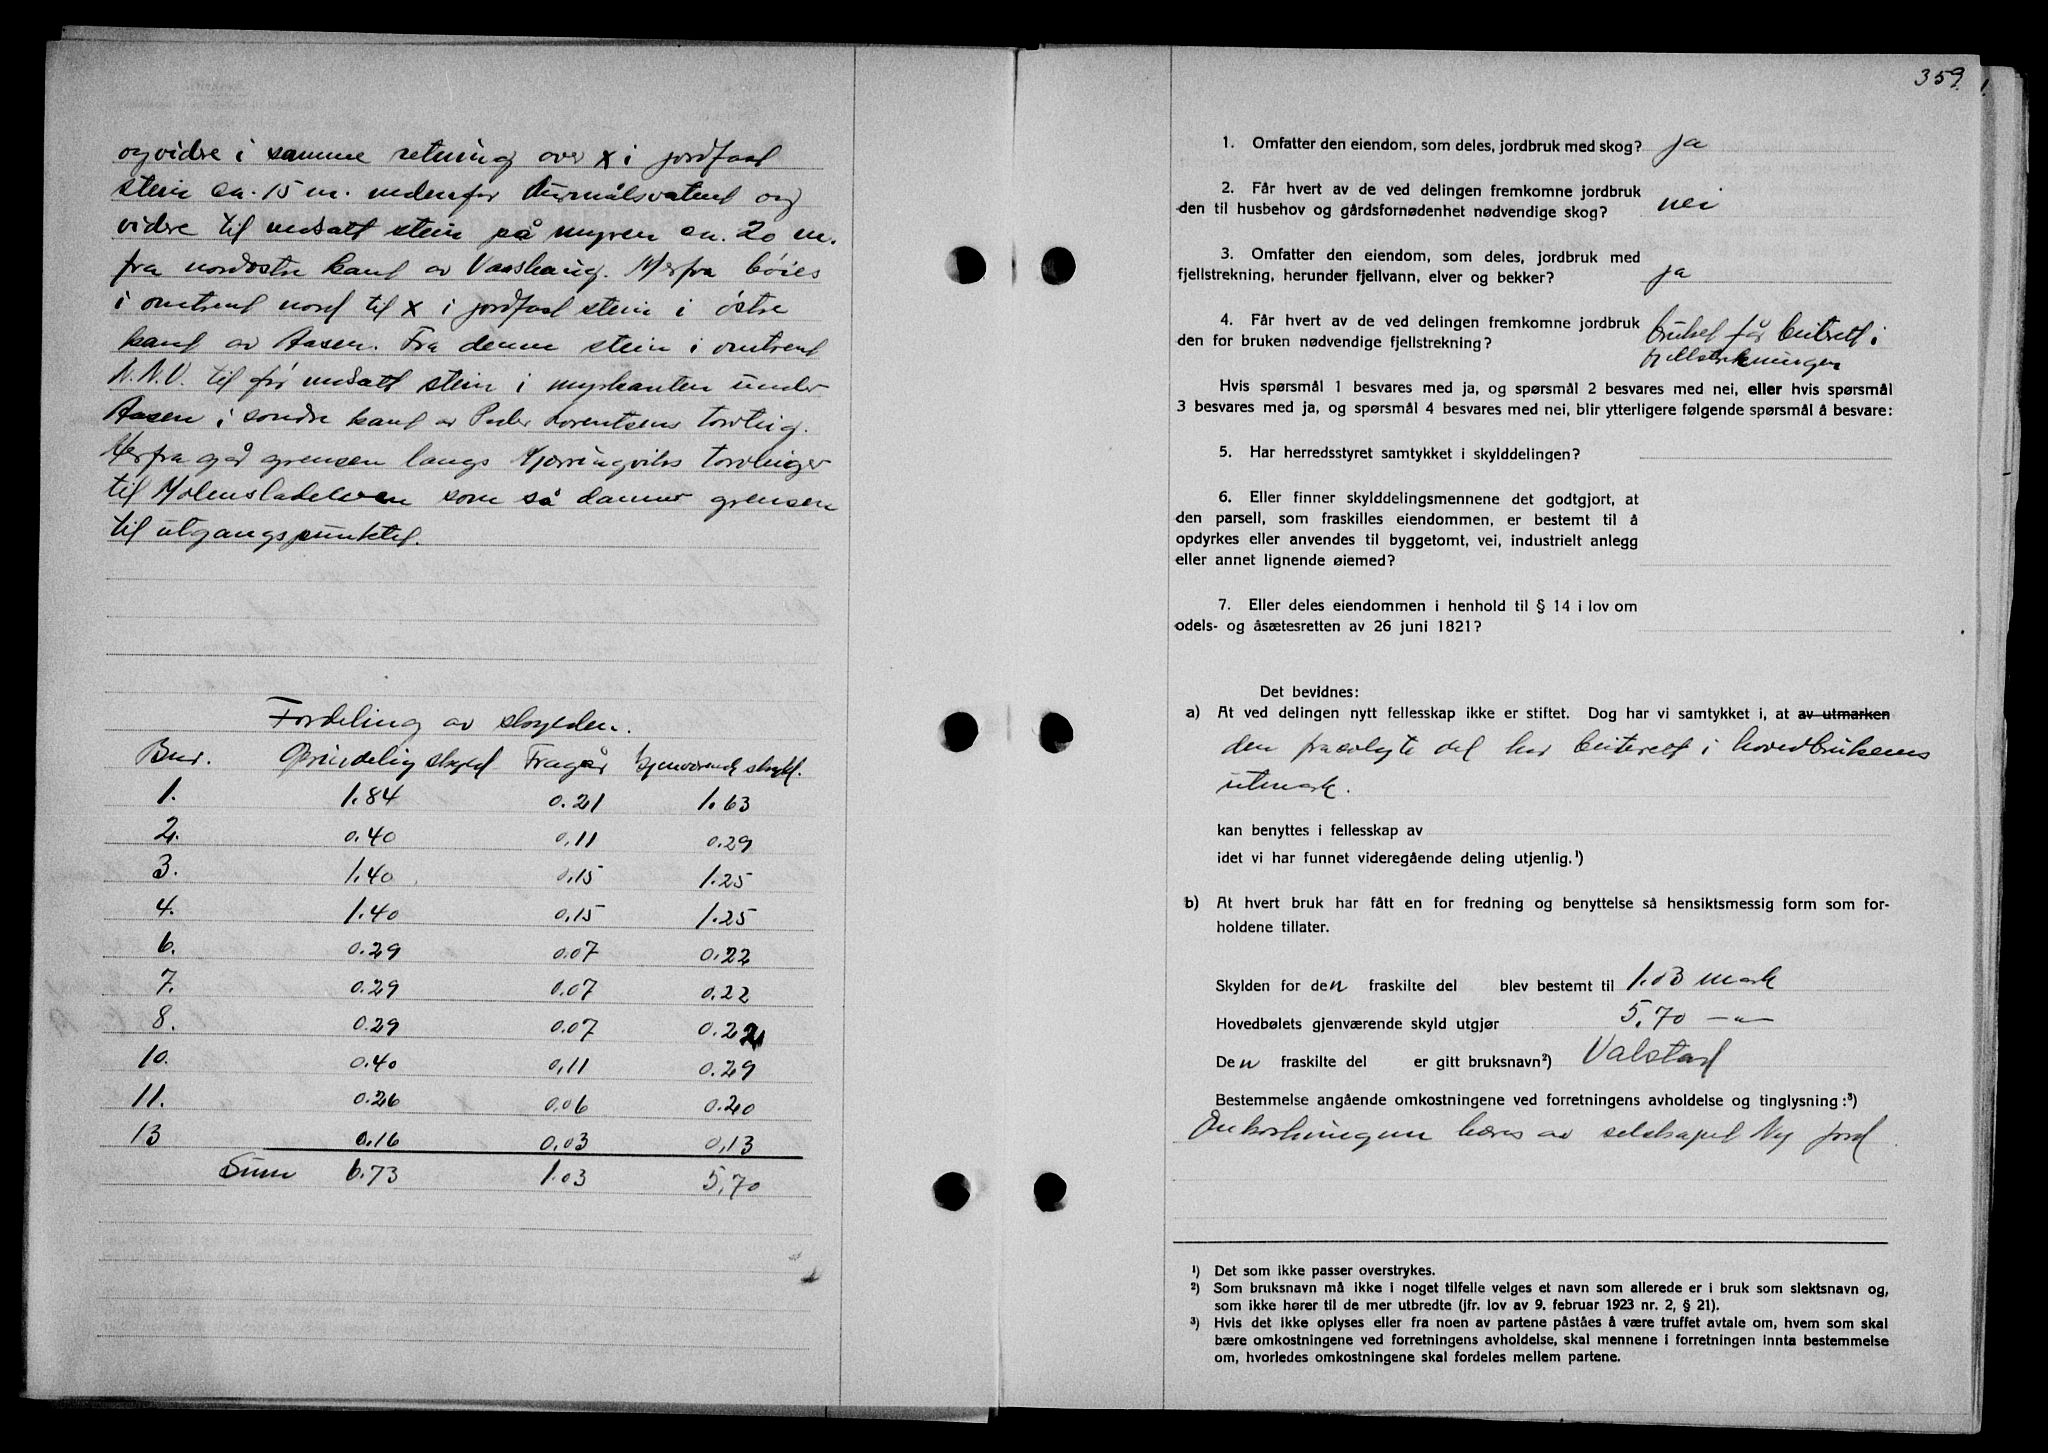 og vidre i samme retning over x i jordfast
stein ca. 15 m. nedenfor Aurmålsvatnet og
vidre til nedsatt stein på myren ca. 20 m.
fra nordøstre kant av Vasshaug. Herfra bøies
i omtrent nord til x i jordfast stein i østre
kant av Aasen. Fra denne stein i omtrent
N.N.V. til før nedsatt stein i myrkanten under
Aasen i søndre kant av Peder Lorentsens torvteig.
Herfra går grensen langs Kjerringviks torvteiger
til Holmsladelven som så danner grensen
til utgangspunktet.
Fordeling av skylden.
Bnr. Oprindelig skyld Fragår Gjenværende skyld.
1. 1.84 0.21 1.63
2. 0.40 0,11 0.29
3. 1.40 0,15 1.25
4. 1.40 0,15 1.25
6. 0.29 0.07 0.22
7. 0.29 0.07 0.22
8. 0.29 0.07 0.22
10. 0.40 0,11 0.29
11. 0.26 0.06 0.20
13 0.16 0.03 0,13
Sum 6.73 1.03 5,70
359.
1. Omfatter den eiendom, som deles, jordbruk med skog? ja
2. Får hvert av de ved delingen fremkomne jordbruk
den til husbehov og gårdsfornødenhet nødvendige skog? nei
3. Omfatter den eiendom, som deles, jordbruk med
fjellstrekning, herunder fjellvann, elver og bekker? ja
4. Får hvert av de ved delingen fremkomne jordbruk
den for bruken nødvendige fjellstrekning? bruket får beitrett i
fjellstrekningen
Hvis spørsmål 1 besvares med ja, og spørsmål 2 besvares med nei, eller hvis spørsmål
3 besvares med ja, og spørsmål 4 besvares med nei, blir ytterligere følgende spørsmål å besvare:
5. Har herredsstyret samtykket i skylddelingen?
6. Eller finner skylddelingsmennene det godtgjort, at
den parsell, som fraskilles eiendommen, er bestemt til å
opdyrkes eller anvendes til byggetomt, vei, industrielt anlegg
eller annet lignende øiemed?
7. Eller deles eiendommen i henhold til § 14 i lov om
odels- og åsætesretten av 26 juni 1821?
Det bevidnes:
a) At ved delingen nytt fellesskap ikke er stiftet. Dog har vi samtykket i, at av utmarken
den frasolgte del har beiterett i hovedbrukens
utmark.
kan benyttes i fellesskap av
idet vi har funnet videregående deling utjenlig.¹)
b) At hvert bruk har fått en for fredning og benyttelse så hensiktsmessig form som for-
holdene tillater.
Skylden for den fraskilte del blev bestemt til 1.03 mark
Hovedbølets gjenværende skyld utgjør 5.70 —"—
Den fraskilte del er gitt bruksnavn²) Valstad
Bestemmelse angående omkostningene ved forretningens avholdelse og tinglysning:³)
Omkostningene bæres av selskapet Ny Jord
¹) Det som ikke passer overstrykes.
²) Som bruksnavn må ikke i noget tilfelle velges et navn som allerede er i bruk som slektsnavn og,
som ikke hører til de mer utbredte (jfr. lov av 9. februar 1923 nr. 2, § 21).
³) Hvis det ikke oplyses eller fra noen av partene påståes å være truffet avtale om, hvem som skal
bære omkostningene ved forretningens avholdelse, skal mennene i forretningen innta bestemmelse
om, hvorledes omkostningene skal fordeles mellem partene.